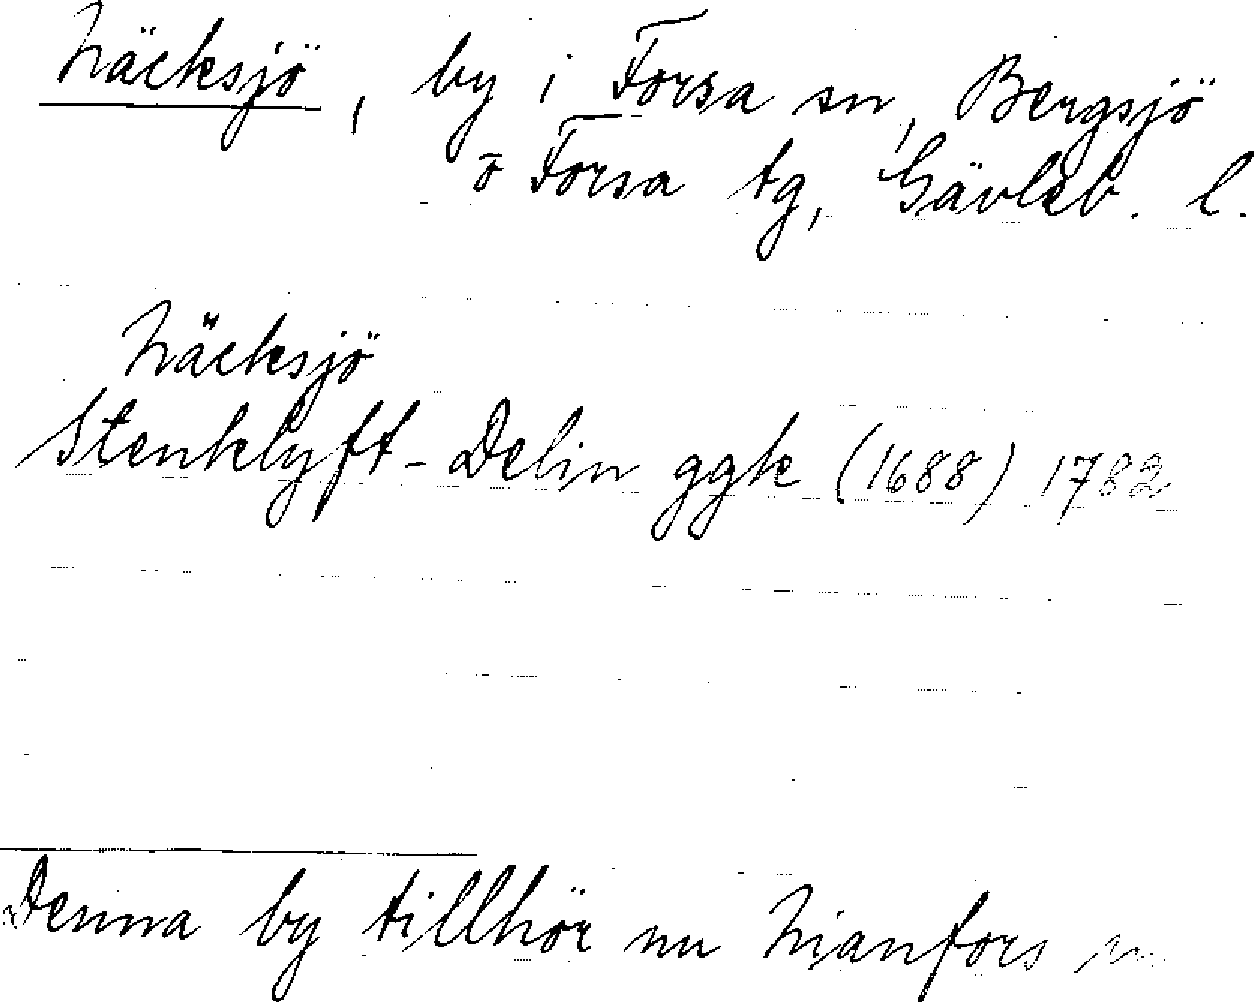 Näcksjö, by i Forsa sn, Bergsjö
o Forsa tg, Gävleb. l.
Näcksjö
Stenklyft-Delin ggk (1688) 1782
Denna by tillhör nu Njanfors sn